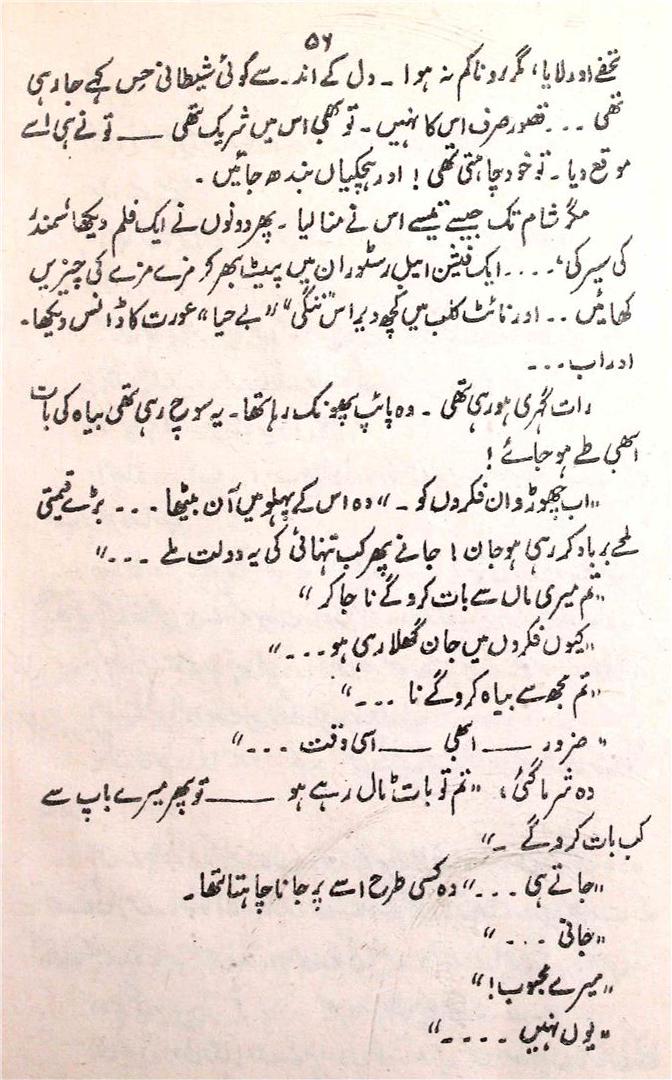 ۵۶
تحفے اور لایا، مگر رونا کم نہ ہوا ۔ دل کے اندر سے کوئی شیطانی حس کہے جا رہی
تھی ... قصور صرف اس کا نہیں ۔ تو بھی اس میں شریک تھی —— تو نے ہی اسے
موقع دیا ۔ تو خود چاہتی تھی ! اور ہچکیاں بندھ جاتیں ۔
مگر شام تک جیسے تیسے اس نے منا لیا ۔ پھر دونوں نے ایک فلم دیکھا، سمندر
کی سیر کی، .... ایک فیشن ایبل رسٹوران میں پیٹ بھر کر مزے مزے کی چیزیں
کھائیں .. اور نائٹ کلب میں کچھ دیر اس "ننگی" "بے حیا" عورت کا ڈانس دیکھا۔
اور اب ...
رات گہری ہو رہی تھی ۔ وہ پائپ پھونک رہا تھا ۔ یہ سوچ رہی تھی بیاہ کی بات
ابھی طے ہو جائے !
"اب چھوڑو ان فکروں کو ۔" وہ اس کے پہلو میں آن بیٹھا ... بڑے قیمتی
لمحے برباد کر رہی ہو جان ! جانے پھر کب تنہائی کی یہ دولت ملے ..."
"تم میری ماں سے بات کرو گے نا جا کر "
"کیوں فکروں میں جان گھلا رہی ہو ..."
"تم مجھ سے بیاہ کرو گے نا ..."
"ضرور —— ابھی —— اسی وقت ..."
وہ شرما گئی، "تم تو بات ٹال رہے ہو —— تو پھر میرے باپ سے
کب بات کرو گے ۔"
"جاتے ہی ..." وہ کسی طرح اسے پرجانا چاہتا تھا ۔
"جانی ..."
"میرے محبوب !"
"یوں نہیں ...."